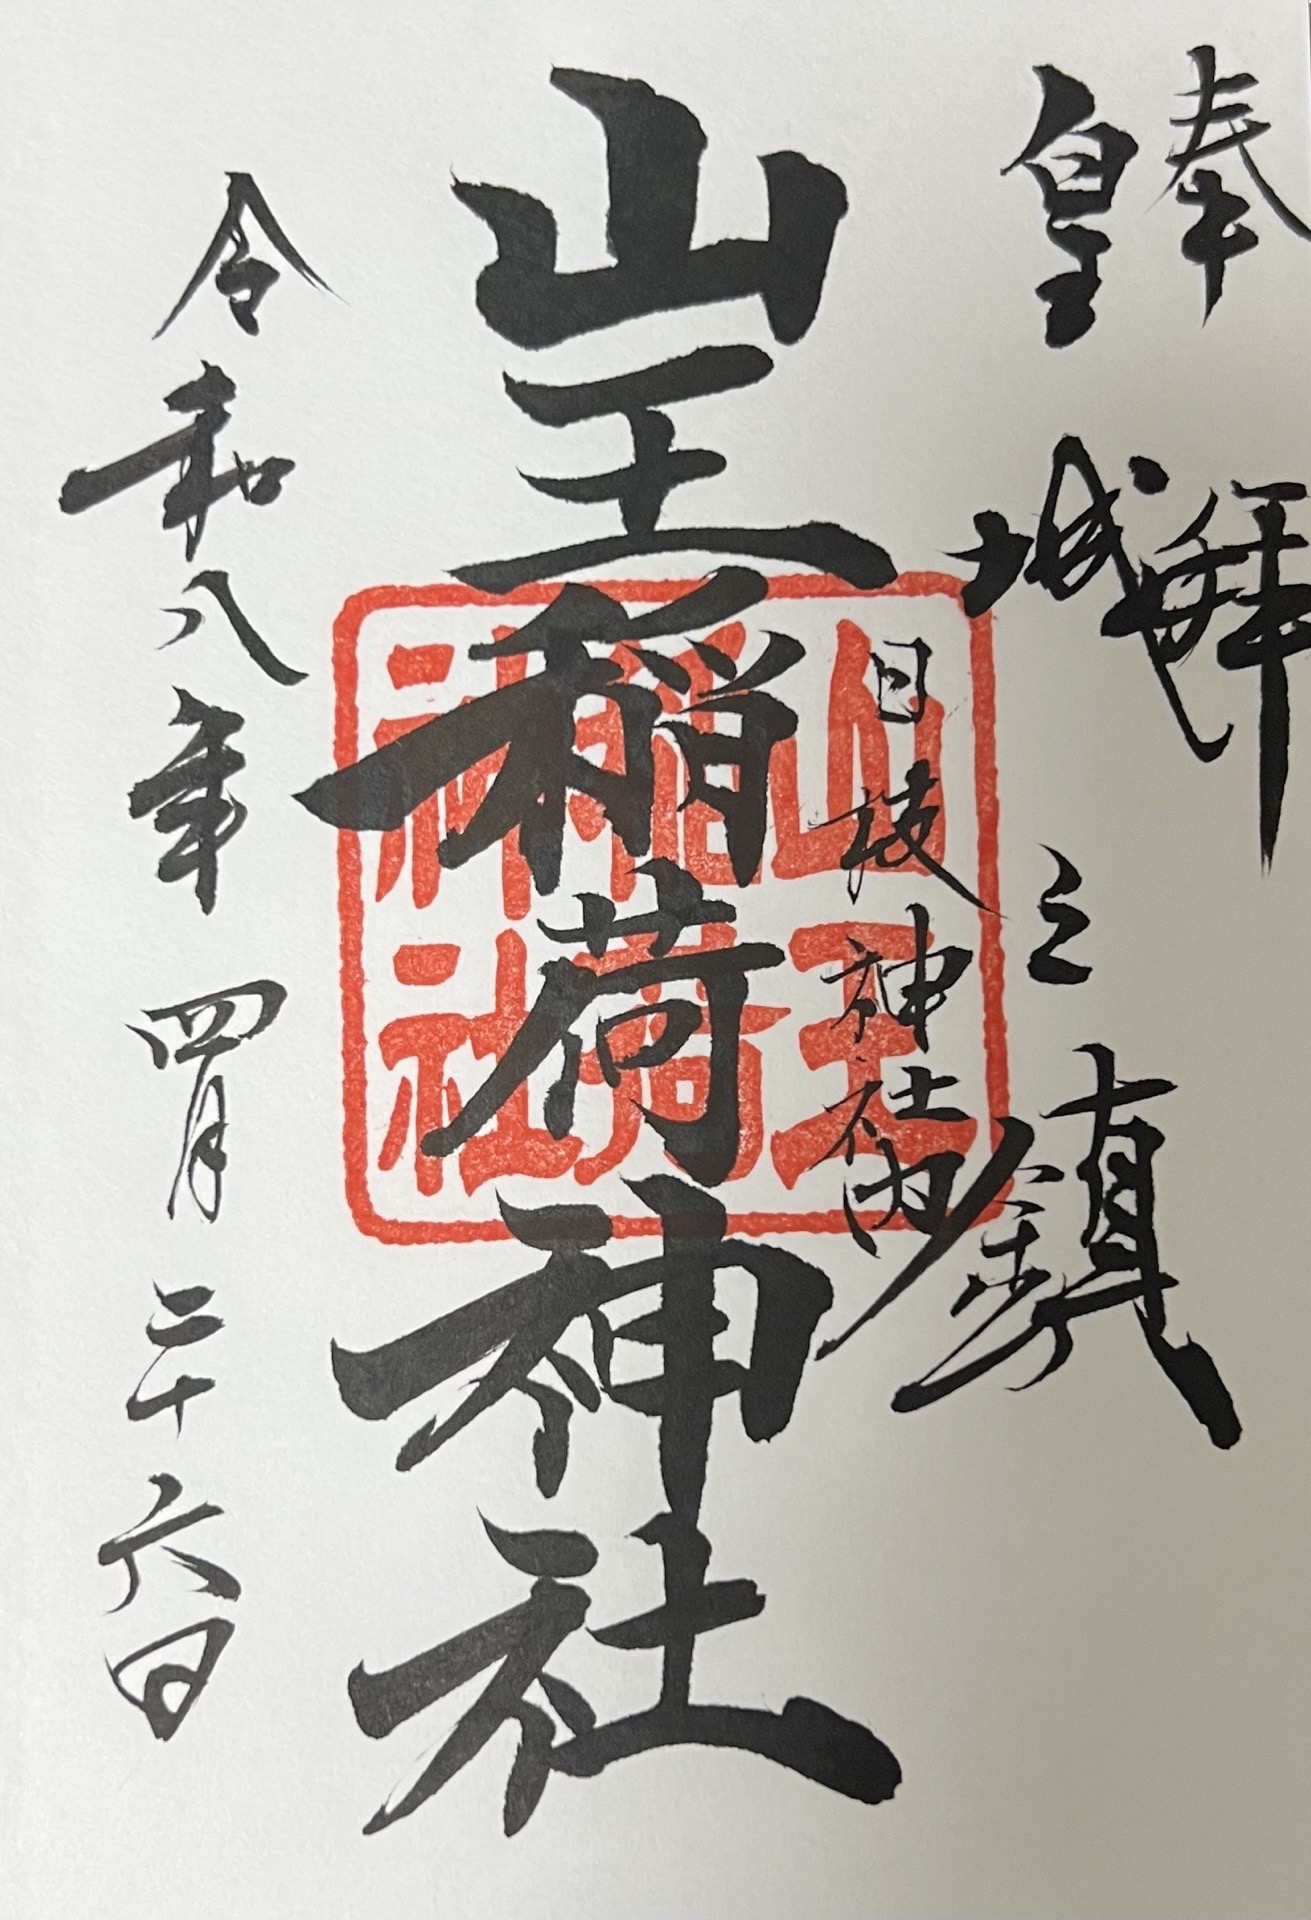 奉拝
皇城之鎮
日枝神社内
山王稲荷神社
山王
稲荷
神社
令和八年四月二十六日